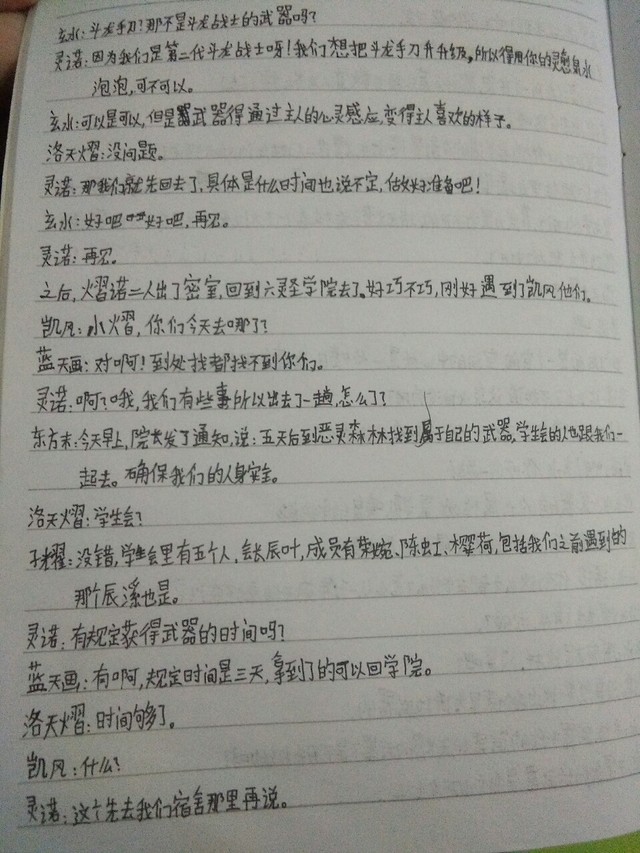 玄水:斗龙手刃?那不是斗龙战士的武器吗?
灵诺:因为我们是第二代斗龙战士呀!我们想把斗龙手刃升升级,所以得用你的灵愈泉水
泡泡,可不可以。
玄水:可以是可以,但是武器得通过主人的心灵感应,变得主人喜欢的样子。
洛天熠:没问题。
灵诺:那我们就先回去了,具体是什么时间也说不定,做好准备吧!
玄水:好吧好吧,再见。
灵诺:再见。
之后,熠诺二人出了密室,回到六灵圣学院去了。好巧不巧,刚好遇到了凯风他们。
凯风:小熠,你们今天去哪了?
蓝天画:对啊!到处找都找不到你们。
灵诺:啊?哦,我们有些事所以出去了一趟,怎么了?
东方末:今天早上,院长发了通知,说:五天后到恶灵森林找到属于自己的武器,学生会的人也跟我们一
起去。确保我们的人身安全。
洛天熠:学生会?
子耀:没错,学生会里有五个人,会长辰叶,成员有荣婉、陈虹、樱荷,包括我们之前遇到的
那个辰溪也是。
灵诺:有规定获得武器的时间吗?
蓝天画:有啊,规定时间是三天,拿到了的可以回学院。
洛天熠:时间够了。
凯风:什么?
灵诺:这个先去我们宿舍那里再说。